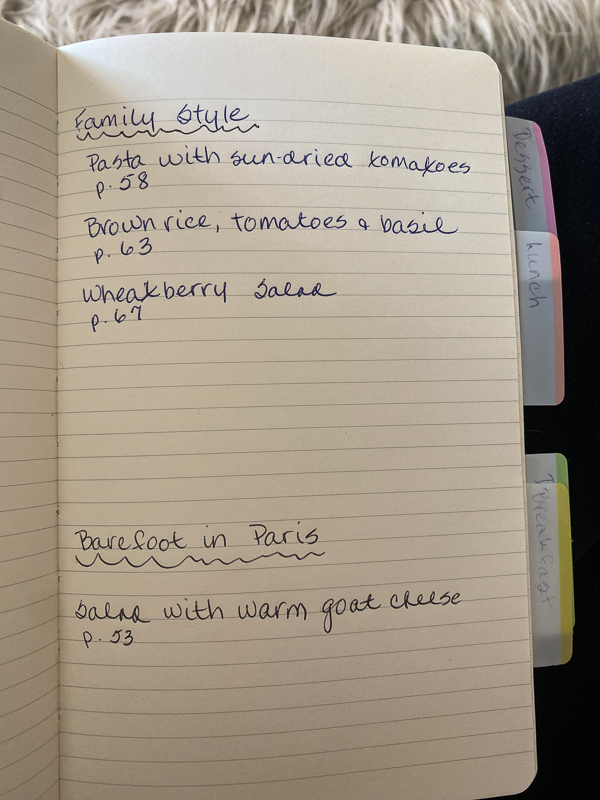 Family Style
Pasta with sun-dried tomatoes
p. 58
Brown rice, tomatoes & basil
p. 63
Wheatberry Salad
p. 67
Barefoot in Paris
Salad with warm goat cheese
p. 53
Dessert
Lunch
Breakfast